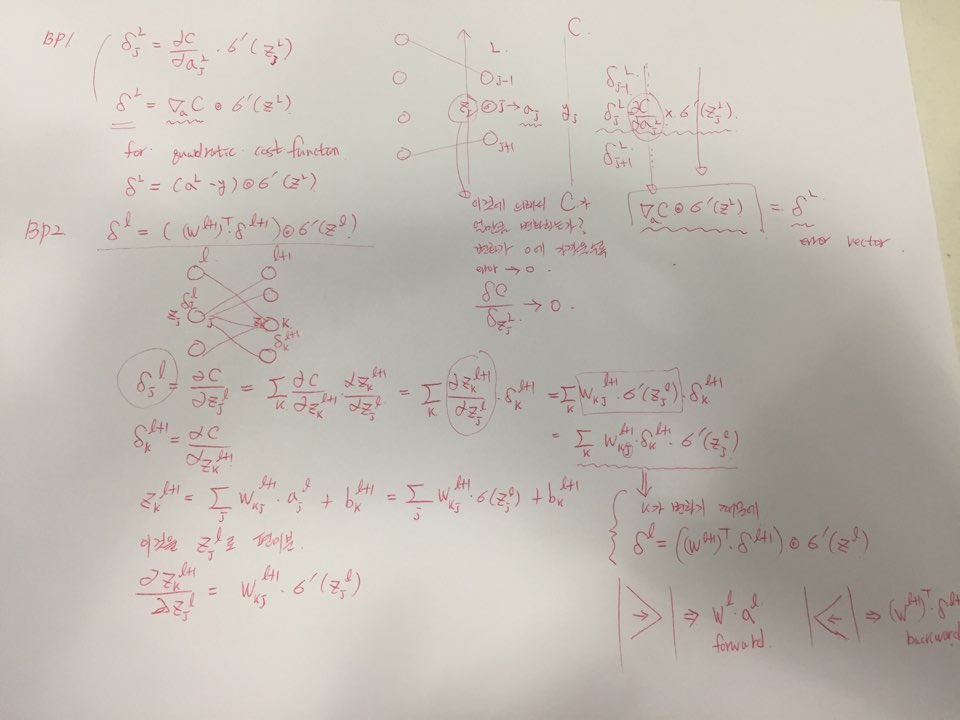 BP1
δ_j^L = ∂C/∂a_j^L · σ'(z_j^L)
δ^L = ∇_a C ⊙ σ'(z^L)
for quadratic cost function
δ^L = (a^L - y) ⊙ σ'(z^L)
C.
L.
j-1
z_j^L j → a_j y_j
j+1
δ_{j-1}^L
δ_j^L = ∂C/∂a_j^L × σ'(z_j^L).
δ_{j+1}^L
∇_a C ⊙ σ'(z^L) = δ^L
error vector.
이것에 의해서 C가
얼만큼 변화하는가?
변화가 0에 가까울수록
에러 → 0.
δC/δz_j^L → 0.
BP2
δ^l = ((w^{l+1})^T · δ^{l+1}) ⊙ σ'(z^l)
l l+1
δ_j^l
z_j j k.
δ_k^{l+1}
δ_j^l = ∂C/∂z_j^l = Σ_k ∂C/∂z_k^{l+1} · ∂z_k^{l+1}/∂z_j^l = Σ_k ∂z_k^{l+1}/∂z_j^l · δ_k^{l+1} = Σ_k w_{kj}^{l+1} · σ'(z_j^l) · δ_k^{l+1}
= Σ_k w_{kj}^{l+1} · δ_k^{l+1} · σ'(z_j^l)
δ_k^{l+1} = ∂C/∂z_k^{l+1}
z_k^{l+1} = Σ_j w_{kj}^{l+1} · a_j^l + b_k^{l+1} = Σ_j w_{kj}^{l+1} · σ(z_j^l) + b_k^{l+1}
이것을 z_j^l로 편미분.
∂z_k^{l+1}/∂z_j^l = w_{kj}^{l+1} · σ'(z_j^l)
k가 변하기 때문에
δ^l = ((w^{l+1})^T · δ^{l+1}) ⊙ σ'(z^l)
⇒ w^l · a^l
forward.
⇒ (w^{l+1})^T · δ^{l+1}
backward